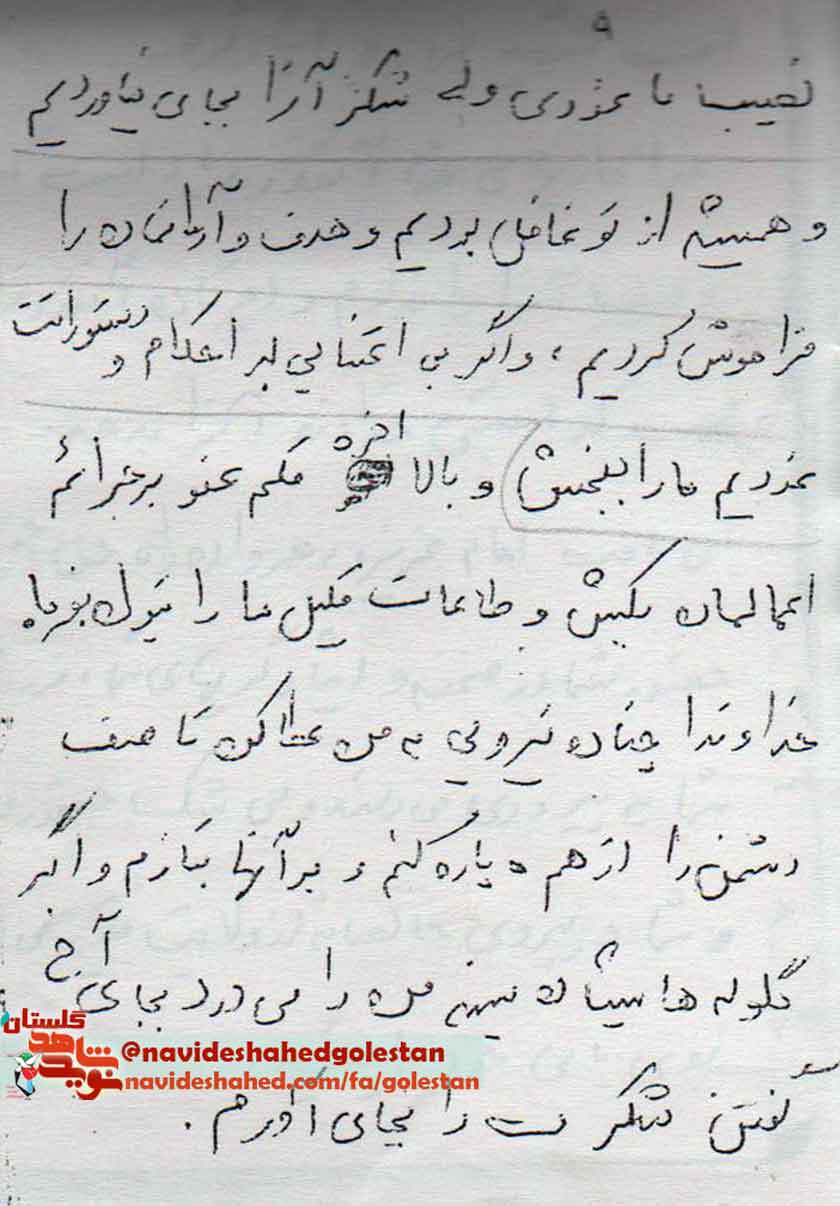 ۹
نصیب ما نمودی ولی شکر آنرا بجای نیاوردیم
و همیشه از تو غافل بودیم و هدف و آرمانمان را
فراموش کردیم، و اگر بی اعتنایی بر احکام و دستوراتت
نمودیم ما را ببخش و بالاخره قلم عفو بر جرائم
اعمالمان بکش و طاعات قلیل ما را قبول بفرما.
خداوندا چنان نیرویی به من عطا کن تا صف
دشمن را از هم پاره کنم و بر آنها بتازم و اگر
گلوله هاشان سینه من را می درد بجای آخ
گفتن شکرت را بجای آورم.
نوید شاهد گلستان
@navideshahedgolestan
navideshahed.com/fa/golestan